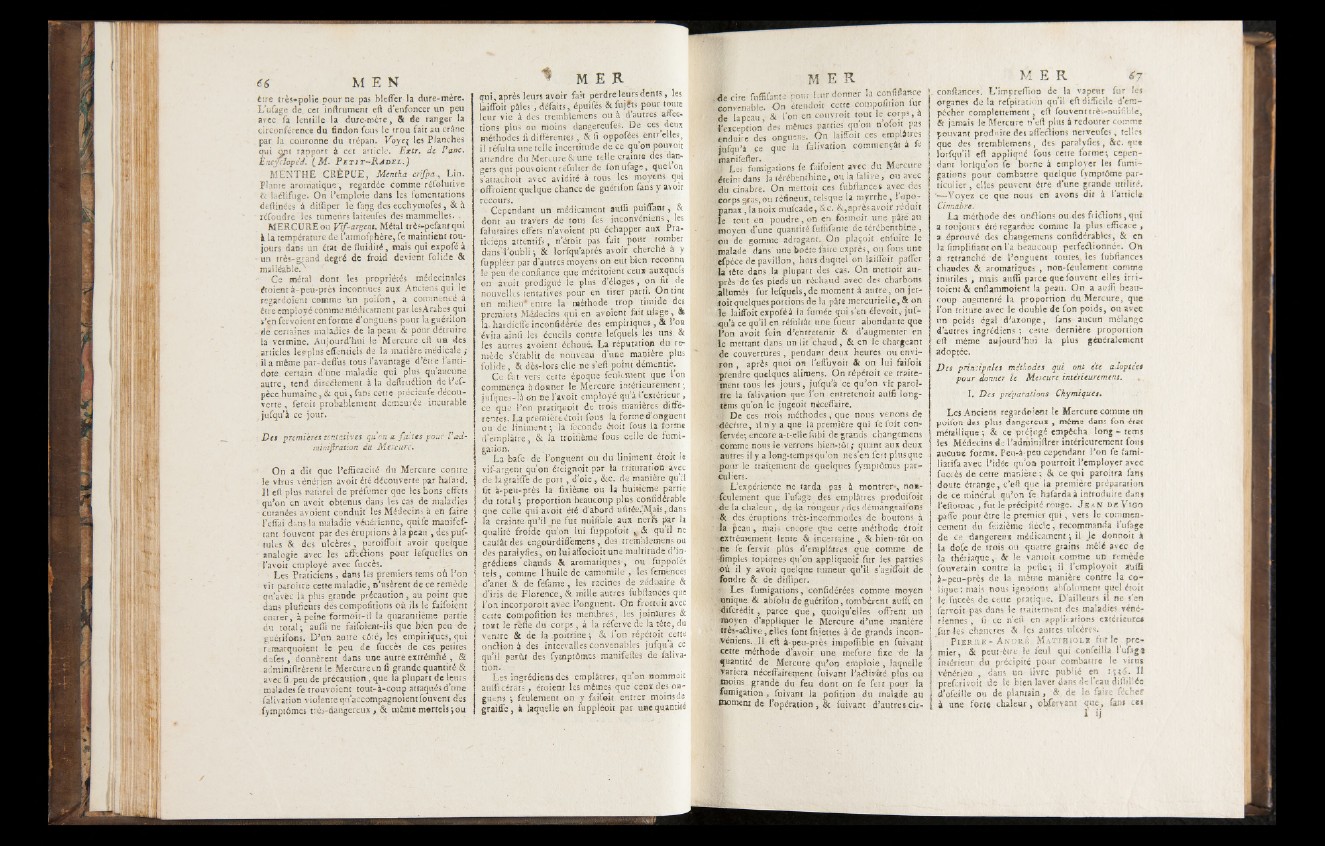 66 M E N
être très-polie pour ne pas blesser la dure-mère.
L'usage de cet instrument est d'enfoncer un peu
avec sa lentille la dure-mère, & de ranger la
circonférence du sindon sous le trou fait au crâne
par la couronne du trépan. Voyez les Planches
qui ont rapport à cet article. Extr. de l'anc.
Encyclopéd. (M. PETIT-RADEL.)
MENTHE CRÊPUE, Mentha crispa, Lin.
Plante aromatique, regardée comme résolutive
& laélifuge. On l'emploie dans les fomentations
destinées à dissiper le sang des ecchymoses, & à
résoudre les tumeurs laiteuses des mammelles.
MERCURE ou Vif-argent. Métal très-pesant qui
à la température de l'atmosphère, se maintient tou-
jours dans un état de fluidité, mais qui exposé à
un très-grand degré de froid devient solide &
malléable.
Ce métal dont les propriétés médecinales
étoient à-peu-près inconnues aux Anciens qui le
regardoient comme un poison, a commencé à
être employé comme médicament par les Arabes qui
s'en servoient en forme d'onguens pour la guérison
de certaines maladies de la peau & pour détruire
la vermine. Aujourd'hui le Mercure est un des
articles les plus essentiels de la matière médicale;
il a même par-dessus tous l'avantage d'être l'anti-
dote certain d'une maladie qui plus qu'aucune
autre, tend directement à la destruction de l'es-
pèce humaine, & qui, sans cette précieuse décou-
verte, seroit probablement demeurée incurable
jusqu'à ce jour.
Des premières tentatives qu'on a faites pour l'ad-
ministration du Mercure.
On a dit que l'efficacité du Mercure contre
le virus vénérien avoit été découverte par hasard.
Il est plus naturel de présumer que les bons effets
qu'on en avoit obtenus dans les cas de maladies
cutanées avoient conduit les Médecins à en faire
l'essai dans la maladie vénérienne, qui se manifes-
tant souvent par des éruptions à la peau, des pus-
tules & des ulcères, paroissoit avoir quelque
analogie avec les affections pour lesquelles on
l'avoit employé avec succès.
Les Praticiens, dans les premiers tems où l'on
vit paroître cette maladie, n'usèrent de ce remède
qu'avec la plus grande précaution, au point que
dans plusieurs des compositions où ils le faisoient
entrer, à peine formoit-il la quarantième partie
du total; aussi ne faisoient-ils que bien peu de
guérisons. D'un autre côté, les empiriques, qui
remarquoient le peu de succès de ces petites
doses, donnèrent dans une autre extrémité, &
administrèrent le Mercure en si grande quantité &
avec si peu de précaution, que la plupart de leurs
malades se trouvoient tout-à-coup attaqués d'une
salivation violente qu'accompagnoient souvent des
symptômes très-dangereux, & même mortels; ou
M E R
qui, après leurs avoir fait perdre leurs dents, les
laissoit pâles, défaits, épuisés & sujets pour toute
leur vie à des tremblemens ou à d'autres affec-
tions plus ou moins dangereuses. De ces deux
méthodes si différentes, & si opposées entr'elles,
il résulta une telle incertitude de ce qu'on pouvoit
attendre du Mercure & une telle crainte des dan-
gers qui pouvoient résulter de son usage, que l'on
s'attachoit avec avidité à tous les moyens qui
offroient quelque chance de guérison sans y avoir
recours.
Cependant un médicament aussi puissant, &
dont au travers de tous ses inconvéniens, les
salutaires effets n'avoient pu échapper aux Pra-
ticiens attentifs, n'étoit pas fait pour tomber
dans l'oubli; & lorsqu'après avoir cherché à y
suppléer par d'autres moyens on eut bien reconnu
le peu de confiance que méritoient ceux auxquels
on avoit prodigué le plus d'éloges, on fit de
nouvelles tentatives pour en tirer parti. On tint
un milieu entre la méthode trop timide des
premiers Médecins qui en avoient fait usage, &
la hardiesse inconsidérée des empiriques, & l'on
évita ainsi les écueils contre lesquels les uns &
les autres avoient échoué. La réputation du re-
mède s'établit de nouveau d'une manière plus
solide, & dès-lors elle ne s'est point démentie.
Ce fut vers cette époque seulement que l'on
commença à donner le Mercure intérieurement;
jusques-là on ne l'avoit employé qu'à l'extérieur,
ce que l'on pratiquoit de trois manières diffé-
rentes. La première étoit sous la forme d'onguent
ou de liniment; la seconde étoit sous la forme
d'emplatre, & la troisième sous celle de fumi-
gation.
La base de l'onguent ou du liniment étoit le
vif-argent qu'on éteignoit par la trituration avec
de la graisse de porc, d'oie, &c. de manière qu'il
fît à-peu-près la sixième ou la huitième partie
du total; proportion beaucoup plus considérable
que celle qui avoit été d'abord usitée. Mais, dans
la crainte qu'il ne fut nuisible aux nerfs par la
qualité froide qu'on lui supposoit, & qu'il ne
causât des engourdissemens, des tremblemens ou
des paralysies, on lui associoit une multitude d'in-
grédiens chauds & aromatiques, ou supposés
tels, comme l'huile de camomile, les semences
d'anet & de sésame, les racines de zédoaire &
d'iris de Florence, & mille autres substances que
l'on incorporoit avec l'onguent. On frottoit avec
cette composition les membres, les jointures &
tout le reste du corps, à la réserve de la tête, du
ventre & de la poitrine; & l'on répétoit cette
onction à des intervalles convenables jusqu'à ce
qu'il parût des symptômes manifestes de saliva-
tion.
Les ingrédiens des emplâtres, qu'on nommoit
aussi cérats, étoient les mêmes que ceux des on-
guens; seulement on y faisoit entrer moins de
graisse, à laquelle on suppléoit par une quantité
M E R
de cire suffisante pour leur donner la consistance
convenable. On étendoit cette composition sur
de la peau, & l'on en couvroit tout le corps, à
l'exception des mêmes parties qu'on n'osoit pas
enduire des onguens. On laissoit ces emplâtres
jusqu'à ce que la salivation commençât à se
manifester.
Les fumigations se faisoient avec du Mercure
éteint dans la térébenthine, ou la salive, ou avec
du cinabre. On mettoit ces substances avec des
corps gras, ou résineux, tels que la myrrhe, l'opo-
panax, la noix muscade, &c. &, après avoir réduit
le tout en poudre, on en formoit une pâte au
moyen d'une quantité suffisante de térébenthine,
ou de gomme adragant. On plaçoit ensuite le
malade dans une boëte faite exprès, ou sous une
espèce de pavillon, hors duquel on laissoit passer
la tête dans la plupart des cas. On mettoit au-
près de ses pieds un réchaud avec des charbons
allumés sur lesquels, de moment à autre, on jet-
toit quelques portions de la pâte mercurielle, & on
le laissoit exposé à la fumée qui s'en élevoit, jus-
qu'à ce qu'il en résultât une sueur abondante que
l'on avoit soin d'entretenir & d'augmenter en
le mettant dans un lit chaud, & en le chargeant
de couvertures, pendant deux heures ou envi-
ron, après quoi on l'essuyoit & on lui faisoit
prendre quelques alimens. On répétoit ce traite-
ment tous les jours, jusqu'à ce qu'on vit paroî-
tre la salivation que l'on entretenoit aussi long-
tems qu'on le jugeoit nécessaire.
De ces trois méthodes, que nous venons de
décrire, il n'y a que la première qui se soit con-
servée; encore a-t-elle subi de grands changemens
comme nous le verrons bien-tôt; quant aux deux
autres il y a long-temps qu'on ne s'en sert plus que
pour le traitement de quelques symptômes par-
culiers.
L'expérience ne tarda pas à montrer, non-
seulement que l'usage des emplâtres produisoit
de la chaleur, de la rougeur, des démangeaisons
& des éruptions très-incommodes de boutons à
la peau, mais encore que cette méthode étoit
extrêmement lente & incertaine, & bien-tôt on
ne se servit plus d'emplâtres que comme de
simples topiques qu'on appliquoit sur les parties
où il y avoit quelque tumeur qu'il s'agissoit de
fondre & de dissiper.
Les fumigations, considérées comme moyen
unique & absolu de guérison, tombèrent aussi en
discrédit, parce que, quoiqu'elles offrent un
moyen d'appliquer le Mercure d'une manière
très-active, elles sont sujettes à de grands incon-
véniens. Il est à-peu-près impossible en suivant
cette méthode d'avoir une mesure fixe de la
quantité de Mercure qu'on emploie, laquelle
variera nécessairement suivant l'activité plus ou
moins grande du feu dont on se sert pour la
fumigation, suivant la position du malade au
moment de l'opération, & suivant d'autres cir-
M E R 67
constances. L'impression de la vapeur sur les
organes de la respiration qu'il est difficile d'em-
pêcher complettement, est souvent très-nuisible,
& jamais le Mercure n'est plus à redouter comme
pouvant produire des affections nerveuses, telles
que des tremblemens, des paralysies, &c. que
lorsqu'il est appliqué sous cette forme; cepen-
dant lorsqu'on se borne à employer les fumi-
gations pour combattre quelque symptôme par-
ticulier, elles peuvent être d'une grande utilité.
—Voyez ce que nous en avons dit à l'article
Cinnabre.
La méthode des onctions ou des frictions, qui
a toujours été regardée comme la plus efficace,
a éprouvé des changemens considérables, & en
la simplifiant on l'a beaucoup perfectionnée. On
a retranché de l'onguent toutes les substances
chaudes & aromatiques, non-seulement comme
inutiles, mais aussi parce que souvent elles irri-
toient & enflammoient la peau. On a aussi beau-
coup augmenté la proportion du Mercure, que
l'on triture avec le double de son poids, ou avec
un poids égal d'axonge, sans aucun mélange
d'autres ingrédiens; cette dernière proportion
est même aujourd'hui la plus généralement
adoptée.
Des principales méthodes qui ont été adoptées
pour donner le Mercure intérieurement.
I. Des préparations Chymiques.
Les Anciens regardoient le Mercure comme un
poison des plus dangereux, même dans son état
métallique; & ce préjugé empêcha long-tems
les Médecins de l'administrer intérieurement sous
aucune forme. Peu-à-peu cependant l'on se fami-
liarisa avec l'idée qu'on pourroit l'employer avec
succès de cette manière; & ce qui paroîtra sans
doute étrange, c'est que la première préparation
de ce minéral qu'on se hasarda à introduire dans
l'estomac, fut le précipité rouge. JEAN DE VIGO
passe pour être le premier qui, vers le commen-
cement du seizième siècle, recommanda l'usage
de ce dangereux médicament; il le donnoit à
la dose de trois ou quatre grains mêlé avec de
la thériaque, & le vantoit comme un remède
souverain contre la peste; il l'employoit aussi
à-peu-près de la même manière contre la co-
lique: mais nous ignorons absolument quel étoit
le succès de cette pratique. D'ailleurs il ne s'en
servoit pas dans le traitement des maladies véné-
riennes, si ce n'est en applications extérieures
sur les chancres & les autres ulcères.
PIERRE-ANDRÉ MATTHIOLE fut le pre-
mier, & peut-être le seul qui conseilla l'usage
intérieur du précipité pour combattre le virus
vénérien, dans un livre publié en 1536. Il
prescrivoit de le bien laver dans de l'eau distillée
d'oseille ou de plantain, & de le faire sécher
à une forte chaleur, observant que, sans ces
I ij